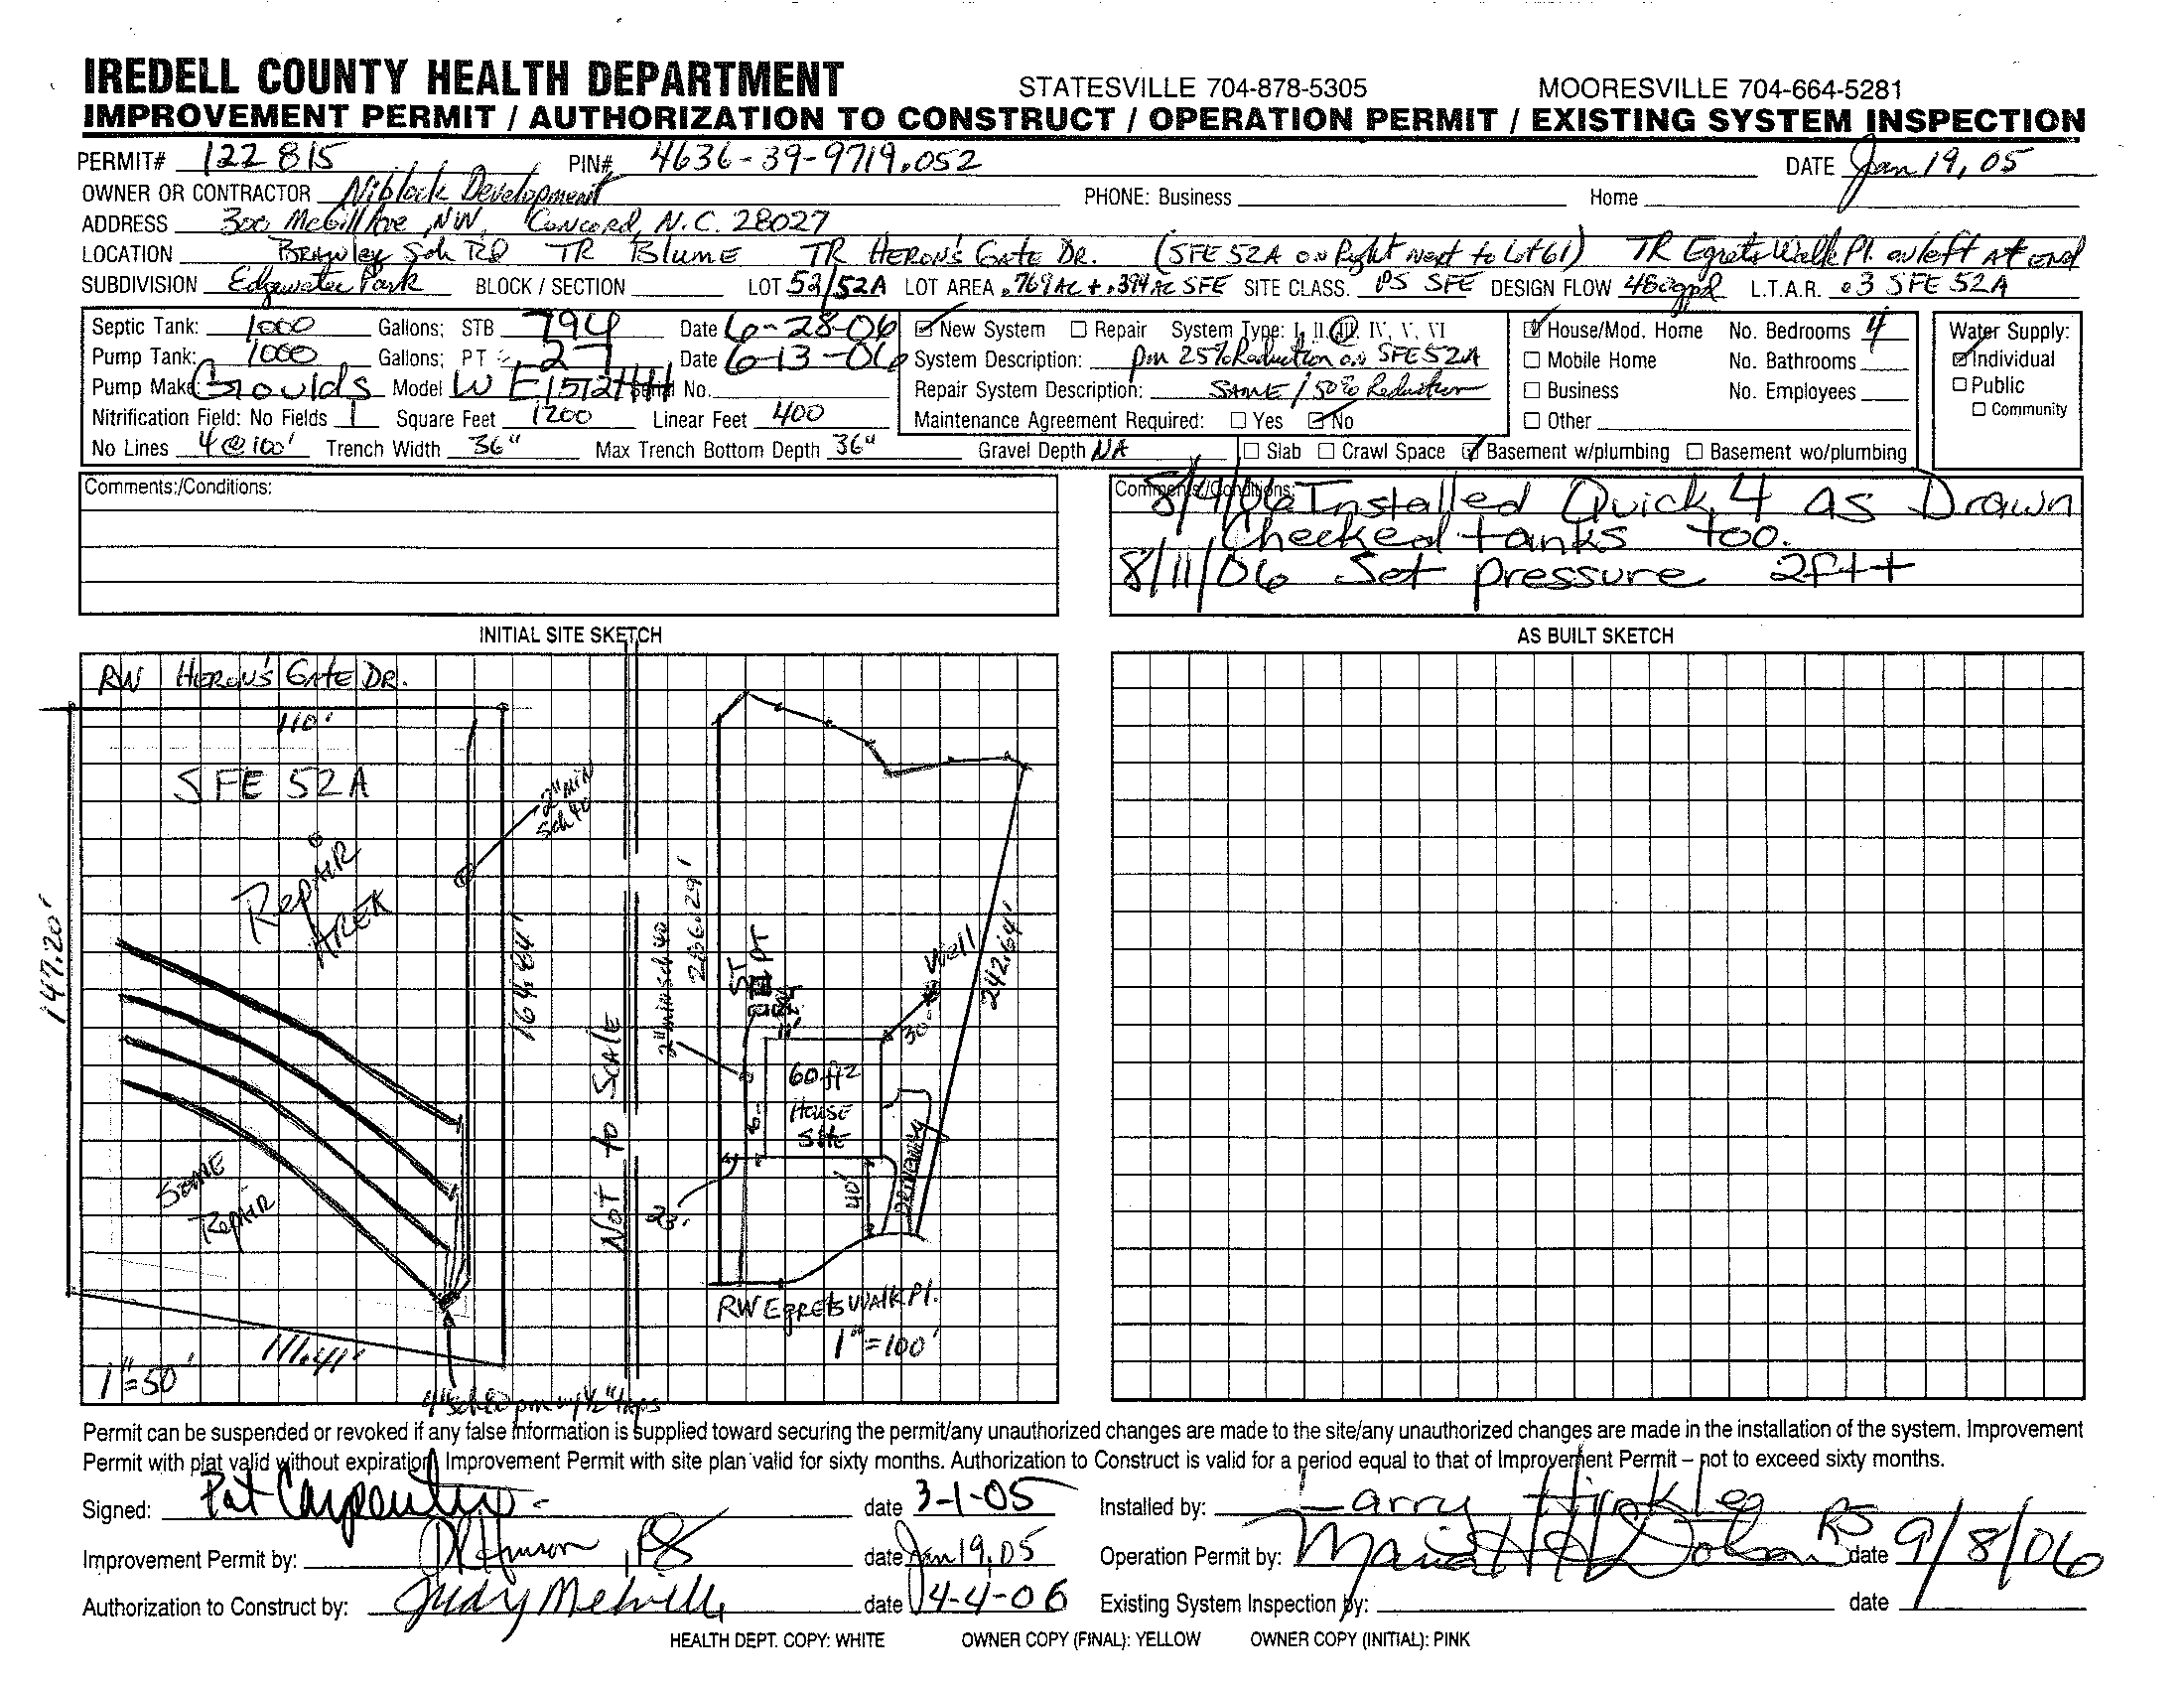 IREDELL COUNTY HEALTH DEPARTMENT STATESVILLE 704-878-5305 MOORESVILLE 704-664-5281
IMPROVEMENT PERMIT / AUTHORIZATION TO CONSTRUCT / OPERATION PERMIT / EXISTING SYSTEM INSPECTION
PERMIT# 122815 PIN# 4636-39-9719.052 DATE Jan 19, 05
OWNER OR CONTRACTOR Niblock Development PHONE: Business Home
ADDRESS 300 McGill Ave, NW, Concord, N.C. 28027
LOCATION Brawley Sch Rd TR Blume TR Heron's Gate Dr. (SFE 52A on Right next to Lot 61) TR Egrets Walk Pl. on left At end
SUBDIVISION Edgewater Park BLOCK / SECTION LOT 52/52A LOT AREA .769 AC + .394 AC SFE SITE CLASS. PS SFE DESIGN FLOW 480gpd L.T.A.R. .3 SFE 52A
Septic Tank: 1000 Gallons; STB 794 Date 6-28-06 New System Repair System Type: I, II, III, IV, V, VI House/Mod. Home No. Bedrooms 4 Water Supply:
Pump Tank: 1000 Gallons; PT 27 Date 6-13-06 System Description: pm 25% Reduction on SFE 52A Mobile Home No. Bathrooms Individual
Pump Make Goulds Model WE1512HH Serial No. Repair System Description: SAME / 50% Reduction Business No. Employees Public
Nitrification Field: No Fields 1 Square Feet 1200 Linear Feet 400 Maintenance Agreement Required: Yes No Other Community
No Lines 4 @ 100' Trench Width 36" Max Trench Bottom Depth 36" Gravel Depth NA Slab Crawl Space Basement w/plumbing Basement wo/plumbing
Comments:/Conditions:
Comments:/Conditions: 8/4/06 Installed Quick 4 as Drawn
Checked tanks too.
8/11/06 Set pressure 2ft+
INITIAL SITE SKETCH AS BUILT SKETCH
RW Heron's Gate Dr.
110'
SFE 52A
2" min
Sch 40
Repair
Area
147.20'
164.64'
Not to Scale
2" min sch 40
256.29'
ST
PT
Well
30
242.64'
60 ft2
House
Site
6
40'
Driveway
23'
Some
Repair
RW Egrets Walk Pl.
1"=100'
111.41'
1"=50'
4" sch 80 pm w/ 1/2" taps
Permit can be suspended or revoked if any false information is supplied toward securing the permit/any unauthorized changes are made to the site/any unauthorized changes are made in the installation of the system. Improvement
Permit with plat valid without expiration. Improvement Permit with site plan valid for sixty months. Authorization to Construct is valid for a period equal to that of Improvement Permit – not to exceed sixty months.
Signed: Pat Carpenter date 3-1-05 Installed by: Larry
Improvement Permit by: date Jan 19, 05 Operation Permit by: RS date 9/8/06
Authorization to Construct by: Judy Melville date 4-4-06 Existing System Inspection by: date
HEALTH DEPT. COPY: WHITE OWNER COPY (FINAL): YELLOW OWNER COPY (INITIAL): PINK